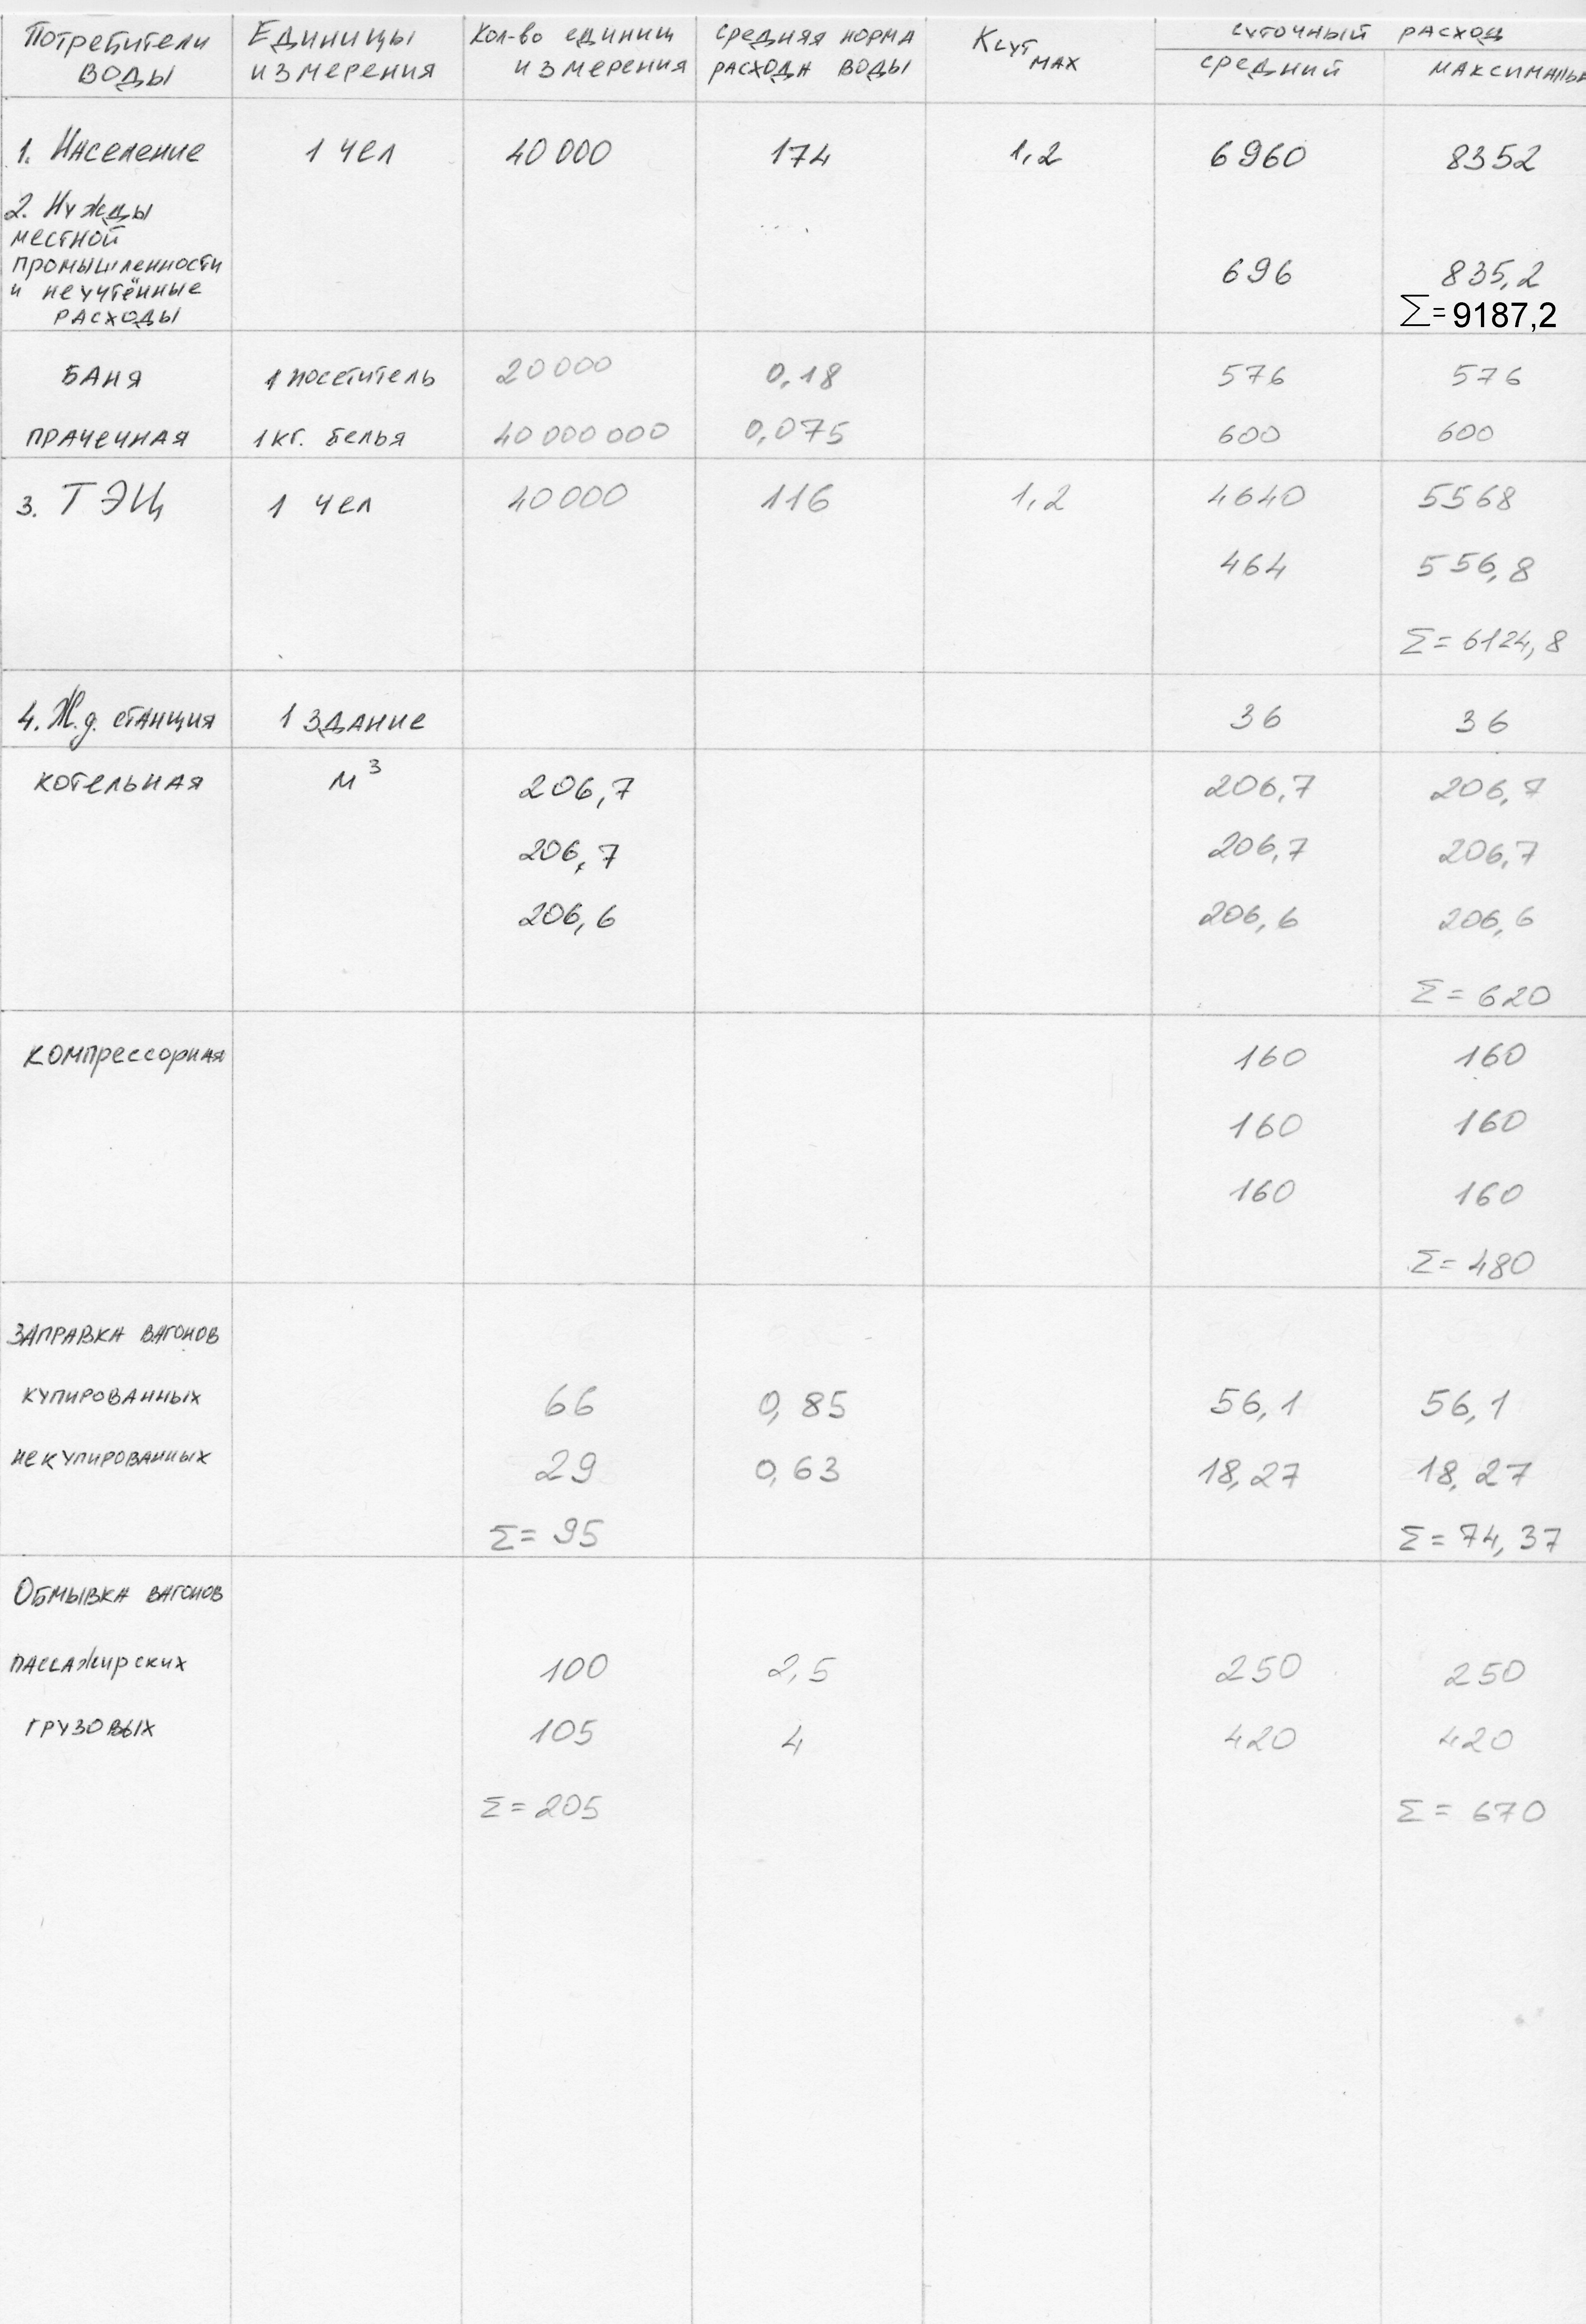 Потребители воды | Единицы измерения | Кол-во единиц измерения | Средняя норма расхода воды | Ксут max | Суточный расход
средний | максимальн
1. Население | 1 чел | 40 000 | 174 | 1,2 | 6960 | 8352
2. Нужды
местной
промышленности | 696 | 835,2
и неучтённые
расходы | Σ= 9187,2
Баня | 1 посетитель | 20000 | 0,18 | 576 | 576
Прачечная | 1 кг. белья | 40 000 000 | 0,075 | 600 | 600
3. ТЭЦ | 1 чел | 40000 | 116 | 1,2 | 4640 | 5568
464 | 556,8
Σ= 6124,8
4. Ж.д. станция | 1 здание | 36 | 36
котельная | м³ | 206,7 | 206,7 | 206,7
206,7 | 206,7 | 206,7
206,6 | 206,6 | 206,6
Σ= 620
компрессорная | 160 | 160
160 | 160
160 | 160
Σ= 480
Заправка вагонов
купированных | 66 | 0,85 | 56,1 | 56,1
некупированных | 29 | 0,63 | 18,27 | 18,27
Σ= 95 | Σ= 74,37
Обмывка вагонов
пассажирских | 100 | 2,5 | 250 | 250
грузовых | 105 | 4 | 420 | 420
Σ= 205 | Σ= 670